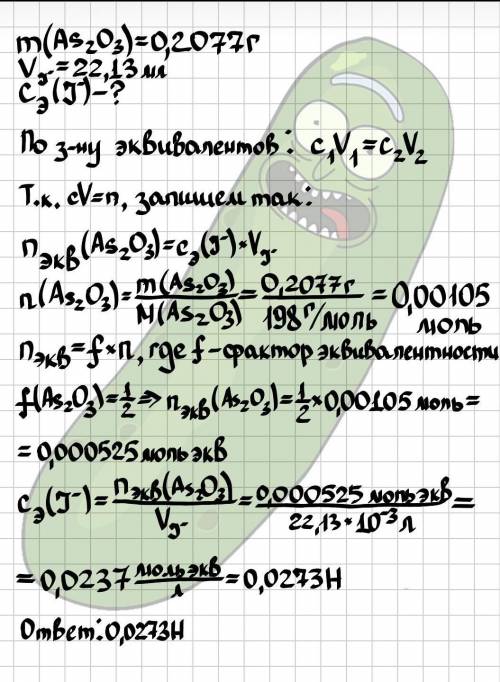 m(As₂O₃)=0,2077г
V_J⁻=22,13мл
Cэ(J⁻)-?
По з-ну эквивалентов: c₁V₁=c₂V₂
Т.к. cV=n, запишем так:
nэкв(As₂O₃)=cэ(J⁻)*V_J⁻
n(As₂O₃)=m(As₂O₃)/M(As₂O₃)=0,2077г/198г/моль=0,00105 моль
nэкв=f*n, где f-фактор эквивалентности
f(As₂O₃)=1/2⇒nэкв(As₂O₃)=1/2*0,00105моль=
=0,000525моль экв
Cэ(J⁻)=nэкв(As₂O₃)/V_J⁻=0,000525 моль экв/22,13*10⁻³л=
=0,0237 моль экв/л=0,0273Н
Ответ:0,0273Н